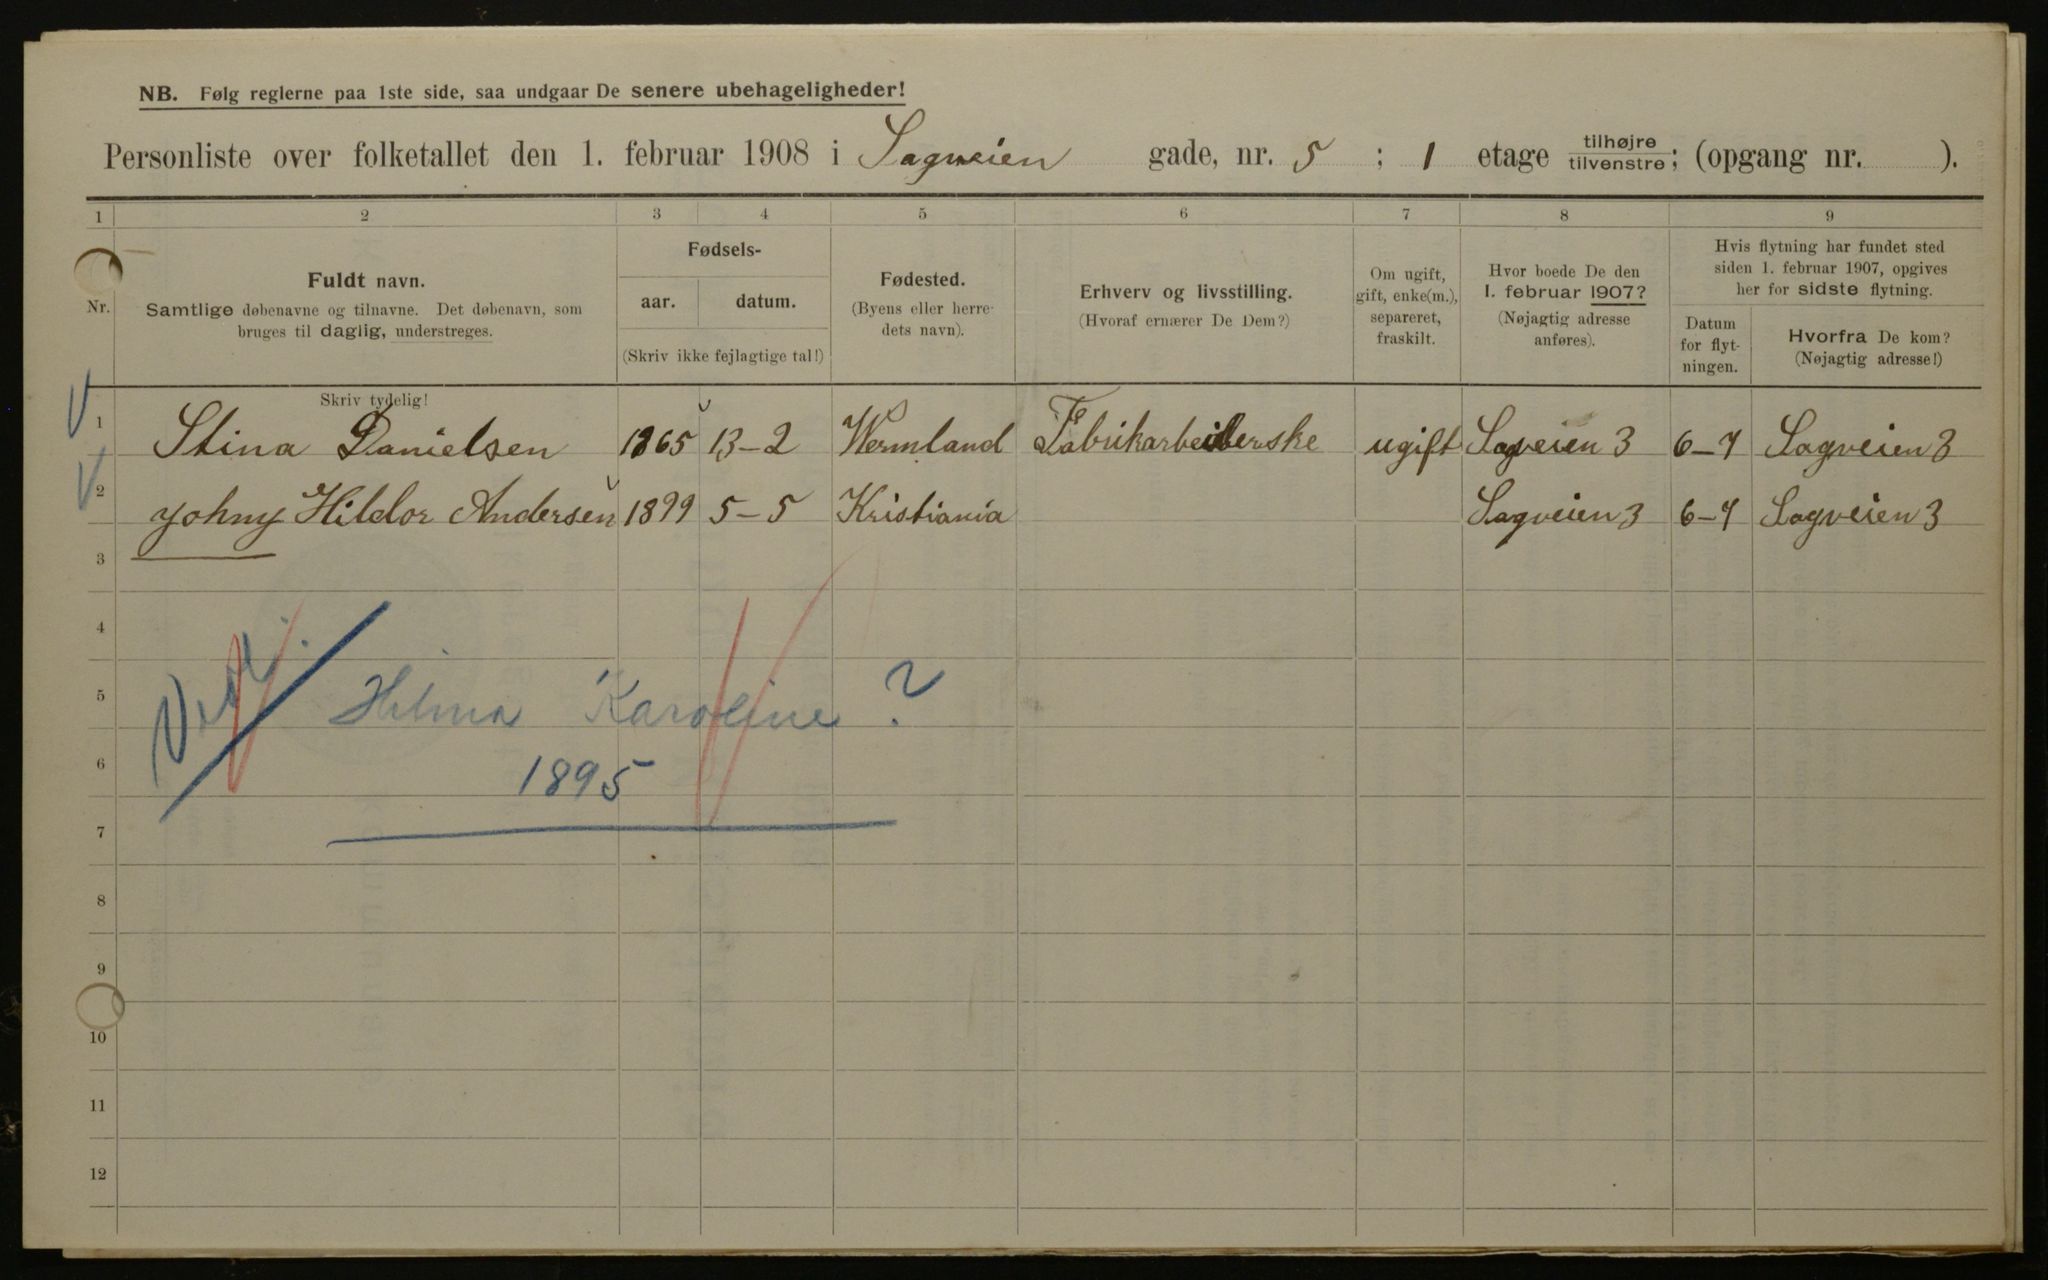 NB. Følg reglerne paa 1ste side, saa undgaar De senere ubehageligheder!
Personliste over folketallet den 1. februar 1908 i Sagveien gade, nr. 5 ; 1 etage tilhøjre tilvenstre; (opgang nr. ).
1 2 3 4 5 6 7 8 9
Nr.
Fuldt navn.
Samtlige døbenavne og tilnavne. Det døbenavn, som
bruges til daglig, understreges.
Skriv tydelig!
Fødsels-
aar. datum.
(Skriv ikke fejlagtige tal!)
Fødested.
(Byens eller herre-
dets navn).
Erhverv og livsstilling.
(Hvoraf ernærer De Dem?)
Om ugift,
gift, enke(m.),
separeret,
fraskilt.
Hvor boede De den
1. februar 1907?
(Nøjagtig adresse
anføres).
Hvis flytning har fundet sted
siden 1. februar 1907, opgives
her for sidste flytning.
Datum
for flyt-
ningen.
Hvorfra De kom?
(Nøjagtig adresse!)
1 Stina Danielsen 1865 13-2 Wermland Fabrikarbeiderske ugift Sagveien 3 6-7 Sagveien 3
2 Johny Hildor Andersen 1899 5-5 Kristiania Sagveien 3 6-7 Sagveien 3
3
4
5 Hilma Karoline ?
6 1895
7
8
9
10
11
12